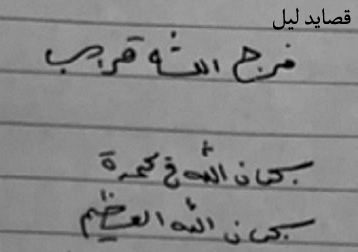 قصايد ليل
فرج الله قريب
سبحان الله وبحمده
سبحان الله العظيم